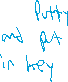 Putty
and put
in key